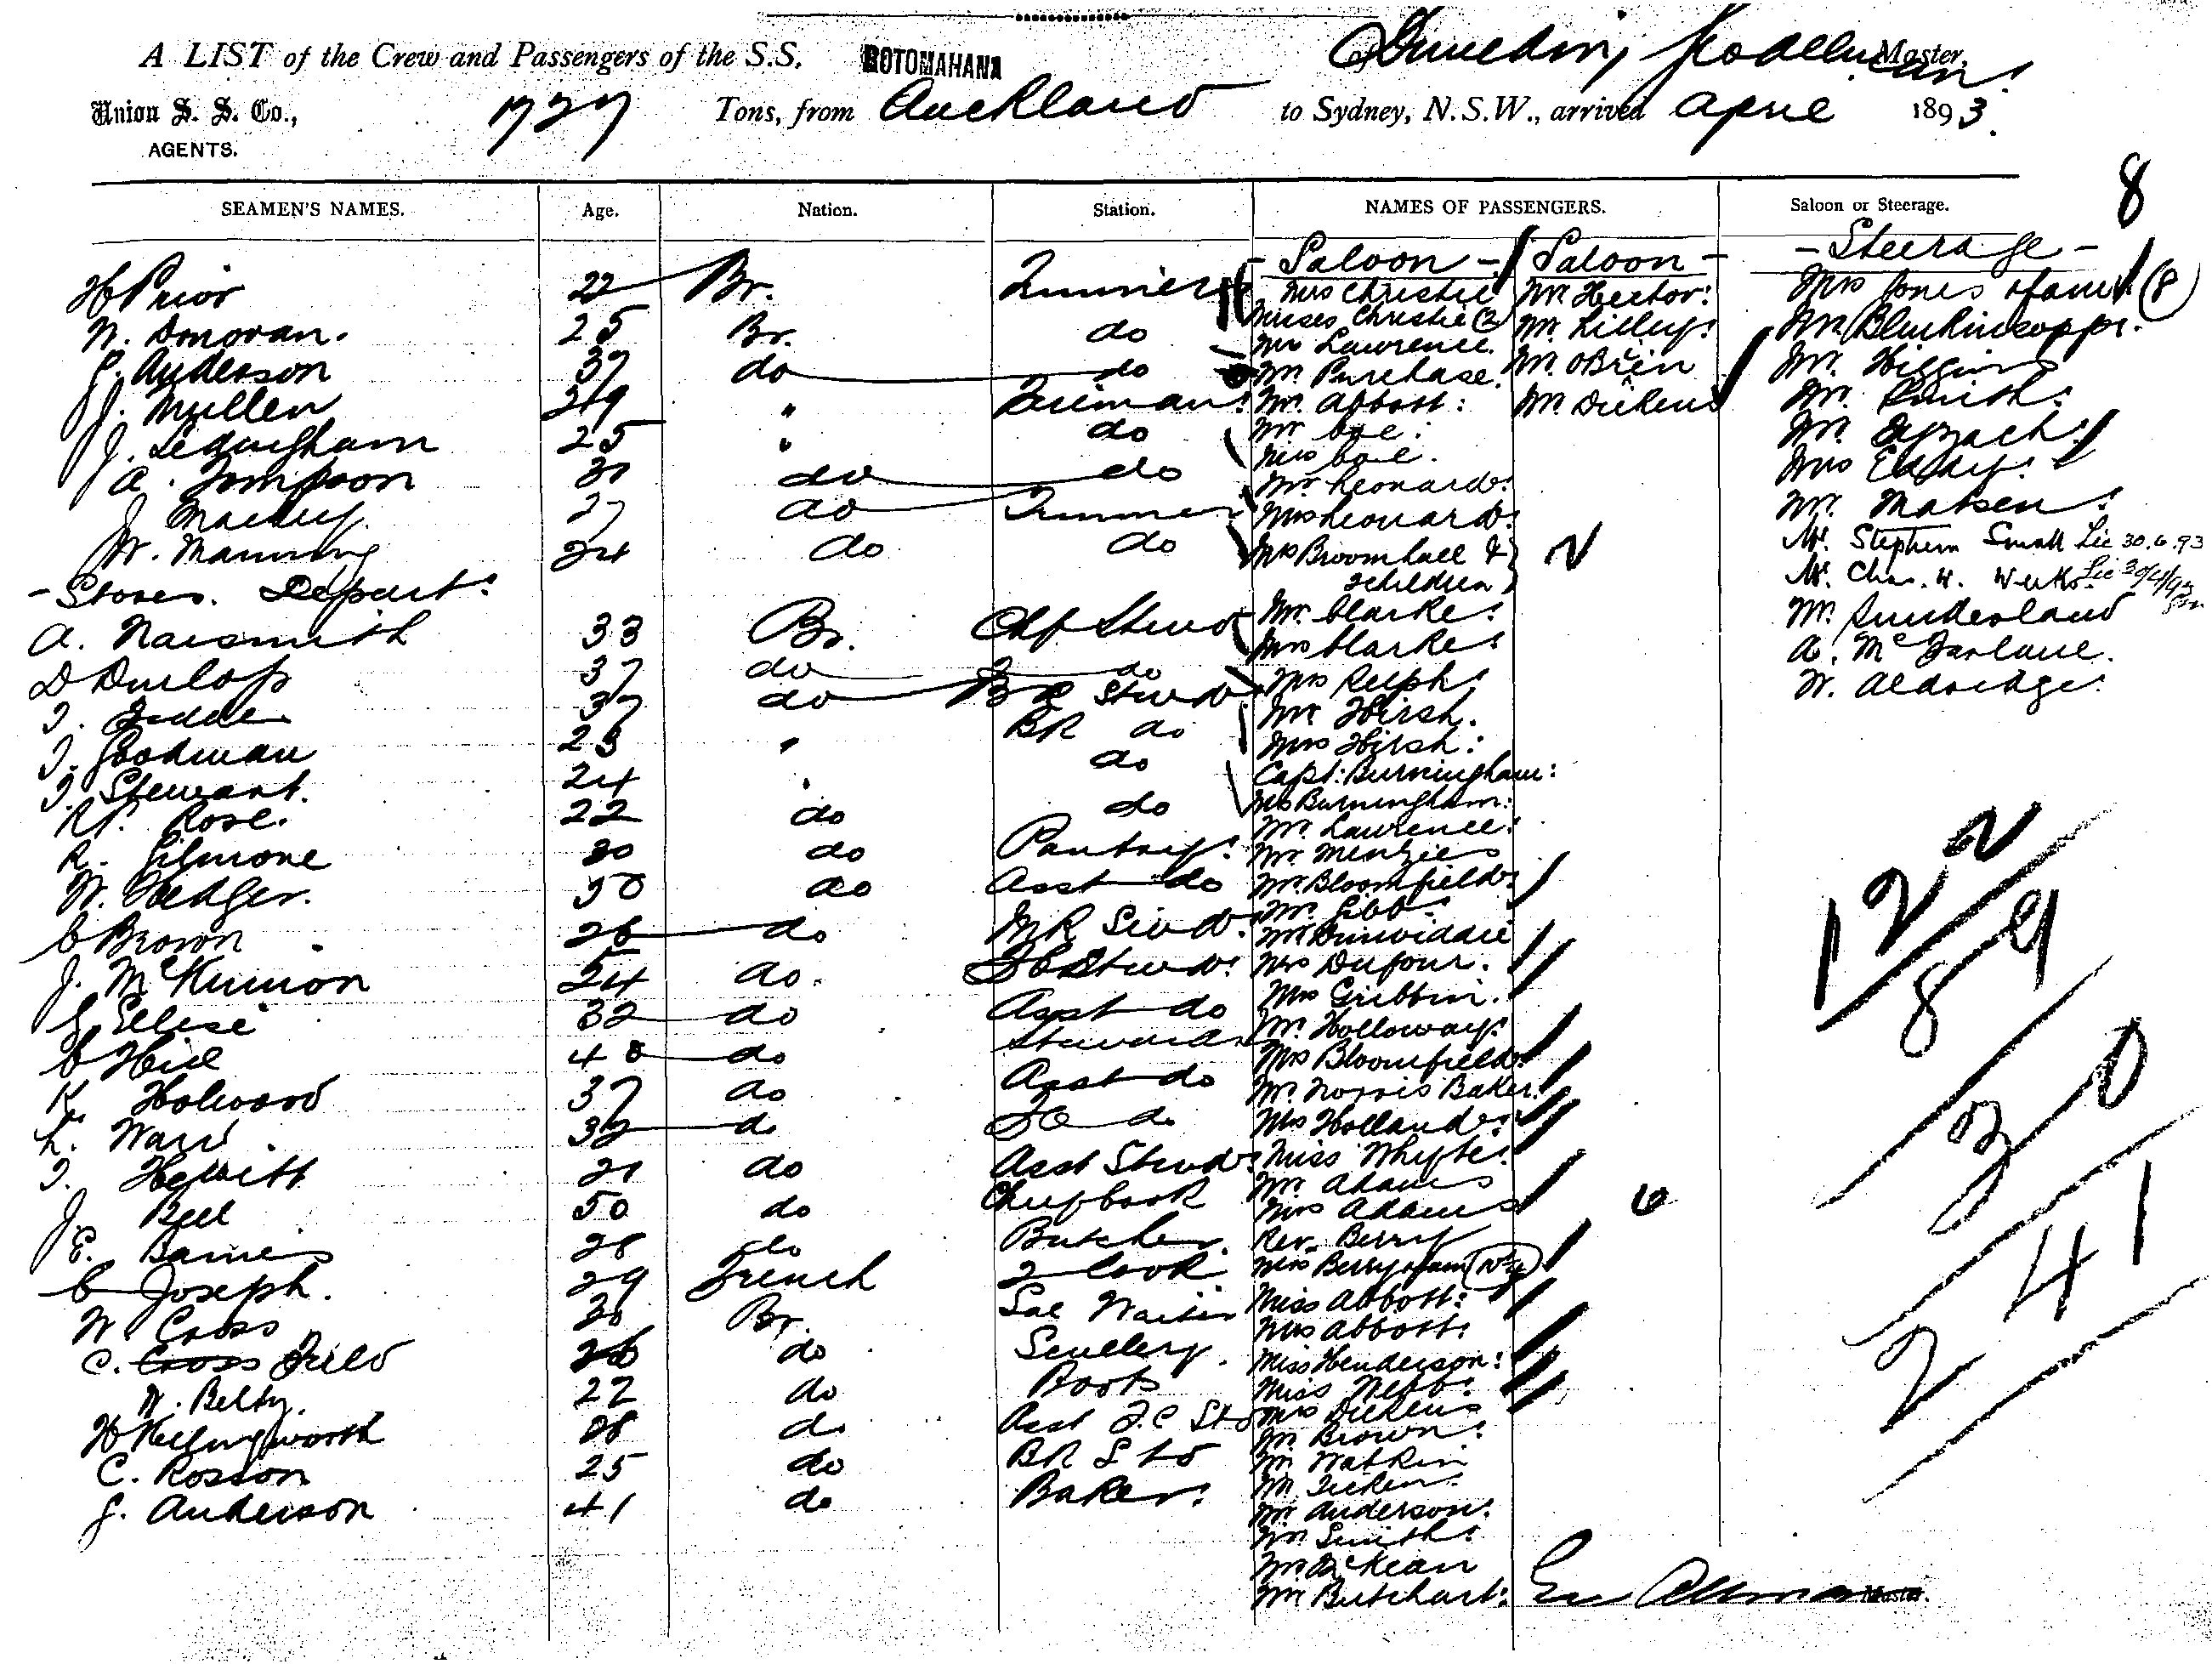 A LIST of the Crew and Passengers of the S.S. ROTOMAHANA of Dunedin, Master,
Union S. S. Co., 1727 Tons, from Auckland to Sydney, N.S.W., arrived April 1893.
AGENTS.
8
SEAMEN'S NAMES. Age. Nation. Station. NAMES OF PASSENGERS. Saloon or Steerage.
- Saloon - Saloon - - Steerage -
H Prior 22 Br. Trimmer
W. Donovan. 25 Br. do
Anderson 37 do do
J. Mullen 29 " Fireman
J. Ledingham 25 " do
A. Tompson 30 do do
J. 27 do Trimmer
W. Manning 24 do do
- Stores. Depart:
A. Naismith 33 Br. Chf Stewd
D Dunlop 37 do 2 do
37 do Stewd
J. Goodman 23 " BR do
J. Stewart. 24 " do
Rt. Rose. 22 do do
R. Gilmore 20 do Pantry:
W. Hedger. 50 do Asst do
C Brown 26 do
J. McKinnon 54 do. Stewd:
G Ellise 32 do Asst do
C Hill 48 do Steward
K Holwood 37 do Asst do
L. Ward 32 do do
J. Hewitt 21 do Asst Stewd:
J. Bell 50 do Chief Cook
E. Barnes 28 do Butcher.
C Joseph. 29 French 2 Cook
W Cross 20 Br. Sal Waiter
C. Cross Field 26 do Scullery.
W. Belby. 22 do Boots
H Killingworth 28 do Asst
C. Rosson 25 do BR Std
J. Anderson 41 do Baker:
Mrs Christie
Misses Christie (2)
Mr Lawrence.
Mr Purchase.
Mr Abbott:
Mr Coe:
Mrs Coe.
Mr Leonard:
Mrs Leonard:
Mrs Broomhall &
2 children
Mr. Clarke:
Mrs Clarke:
Mrs
Mr Hirsh.
Mrs Hirsh:
Capt: Burningham:
Mrs Burningham:
Mr. Lawrence:
Mr Menzies
Mr. Bloomfield:
Mr. Gibb:
Mr Dinwiddie
Mrs Dufour.
Mrs Gribbin.
Mr. Holloway:
Mrs Bloomfield:
Mr. Norris Baker:
Mrs Holland:
Miss Whyte:
Mr. Adams
Mrs Adams
Rev. Berry
Mrs Berry & fam
Miss Abbott:
Mrs Abbott:
Miss Henderson:
Miss Webb:
Mrs Dickens
Mr. Brown:
Mr Watkin
Mr
Mr. Anderson:
Mr Smith:
Mr McKean
Mr Butchart:
Mr Hector:
Mr. Lilley:
Mr. OBrien
Mr Dickens
2
6
Mrs Jones & famy (8)
Mr Blenkinsopp:
Mr. Higgins
Mr. Smith:
Mr.
Mrs
Mr. Matsen:
Mr. Stephen Small Lic 30.6.93
Mr. Chas. H. Weeks
Mr. Sunderland
A. McFarlane.
W. Aldridge:
2
12
89
30
41
2
Master.